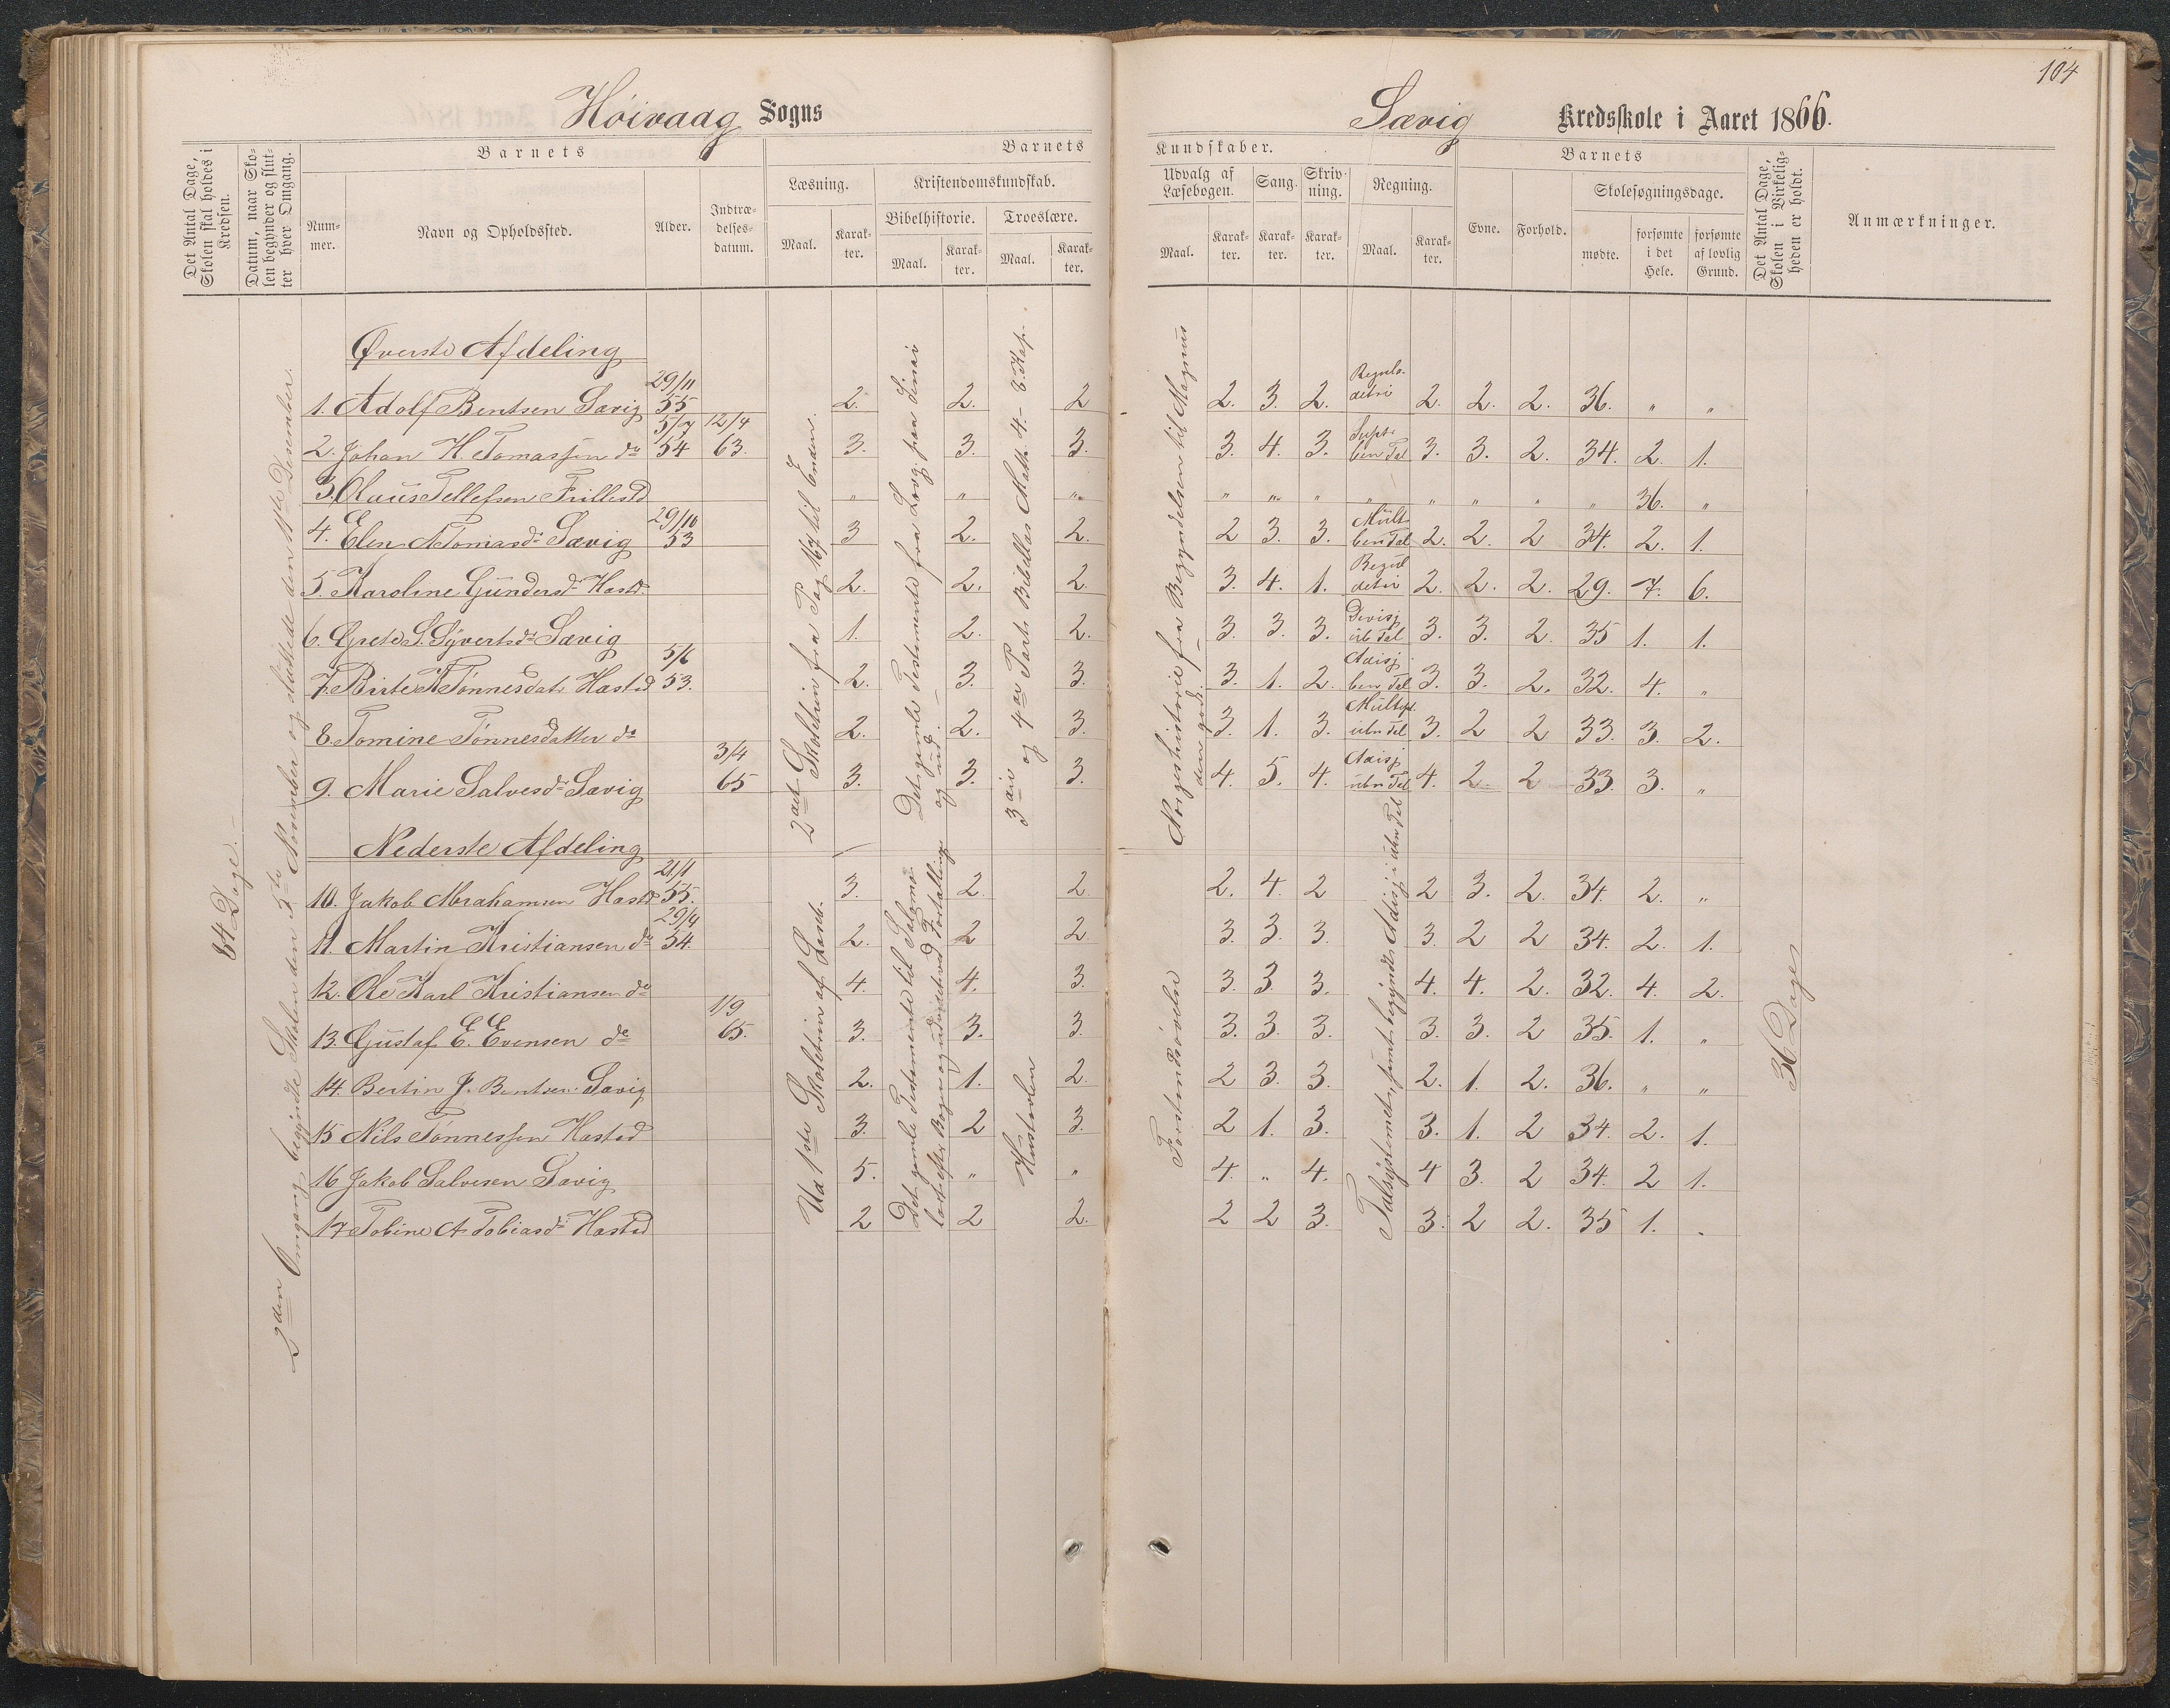 104
Höivaag Sogns
Sævig Kredsskole i Aaret 1866.
Det Antal Dage, Skolen skal holdes i Kredsen.
Datum, naar Skolen begynder og slutter hver Omgang.
Barnets
Nummer.
Navn og Opholdssted.
Alder.
Indtrædelsesdatum.
Barnets Kundskaber.
Læsning.
Maal.
Karakter.
Kristendomskundskab.
Bibelhistorie.
Maal.
Karakter.
Troeslære.
Maal.
Karakter.
Udvalg af Læsebogen.
Maal.
Karakter.
Sang.
Karakter.
Skrivning.
Karakter.
Regning.
Maal.
Karakter.
Barnets
Evne.
Forhold.
Skolesøgningsdage.
mødte.
forsømte i det Hele.
forsømte af lovlig Grund.
Det Antal Dage, Skolen i Virkeligheden er holdt.
Anmærkninger.
84 Dage.
2den Omgang begyndte Skolen den 5te November og sluttede den 11te Desember.
Øverste Afdeling
1. Adolf Bentsen Sævig 29/11 55 2. 2. 2 2. 3. 2. 2. 2. 2. 36. " "
2. Johan H. Tomassen do 5/7 54 12/4 63. 3. 3. 3. 3. 4. 3. 3. 3. 2. 34. 2. 1.
3. Olaus Tellefsen Trillestd " " " " " " " " " " " 36. "
4. Elen A Tomasdr Sævig 29/10 53 3 2. 2. 2 3. 3. 2. 2. 2 34. 2. 1.
5. Karoline Gundersdr Hastd 2. 2. 2. 3. 4. 1. 2. 2. 2. 29. 7. 6.
6. Grete S. Syvertsdr Sævig 1. 2. 2. 3. 3. 3. 3. 3. 2. 35 1. 1.
7. Birte K Tønnesdatr Hastd 5/6 53. 2. 3. 3. 3. 1. 2. 3. 3. 2. 32. 4. "
8. Tomine Tønnesdatter do 2. 2. 3. 3. 1. 3. 3. 2 2 33. 3. 2.
9. Marie Salvesdr Sævig 3/4 65 3. 3. 3. 4. 5. 4. 4. 2. 2 33. 3. "
2det Skoletrin fra Pag 167 til Enden.
Det gamle Testamente fra Lovg. paa Sinai og ud.
3die og 4de Part. Bibellæs Math. 4.- 6. Kap.
Norgeshistorie fra Begyndelsen til Magnus den gode.
Nederste Afdeling
10. Jakob Abrahamsen Hastd 21/1 55. 3. 2. 2. 2. 4. 2 2 3. 2. 34. 2. "
11. Martin Kristiansen do 29/9 54. 2. 2 2 3. 3. 3. 3. 2 2 34. 2. 1.
12. Ole Karl Kristiansen do 4. 4. 3. 3. 3. 3. 4. 4. 2. 32. 4. 2.
13. Gustaf E. Evensen do 1/9 65. 3. 3. 3. 3. 3. 3. 3. 3. 2 35. 1. "
14. Bertin J. Bentsen Sævig 2. 1. 2. 2 3. 3. 2. 1. 2. 36. " "
15 Nils Tønnessen Hastad 3. 2 3. 2 1. 3. 3. 1. 2 34. 2. 1.
16 Jakob Salvesen Sævig 5. " " 4. " 4. 4 3. 2 34. 2 1.
17 Tobine A Tobiasdr Hastad 2 2 2. 2 2 3. 3. 2 2. 35 1. "
Ud 1ste Skoletrin af Læseb.
Det gamle Testamente til Salomo
Hustavlen
Forstandsøvelse
Talsystemet, samt begyndt Adisj. i ubn Tal
36 Dage